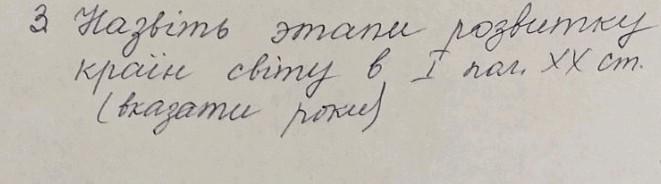 3. Назвіть этапи розвитку
країн світу в I пол. XX ст.
(вказати роки)